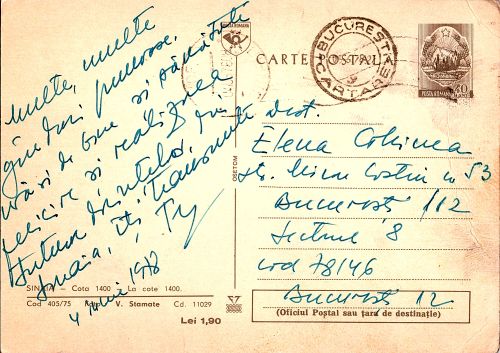 Multe, multe
gânduri frumoase,
urări de bine și sănătate
fericire și realizarea
tuturor dorințelor, din
Sinaia, îți transmite
Ty
4 iunie 1978
SINAIA – Cota 1400 – La cote 1400.
Cod 405/75 V. Stamate Cd. 11029
Lei 1,90
OSETCM
POSTA ROMANA
CARTE POSTALA
BUCURESTI
CARTARE
POSTA ROMANA 40
Dest.
Elena Cohinea
str. Miron Costin no 53
București 12
Sectorul 8
cod 78146
București 12
(Oficiul Poștal sau țara de destinație)